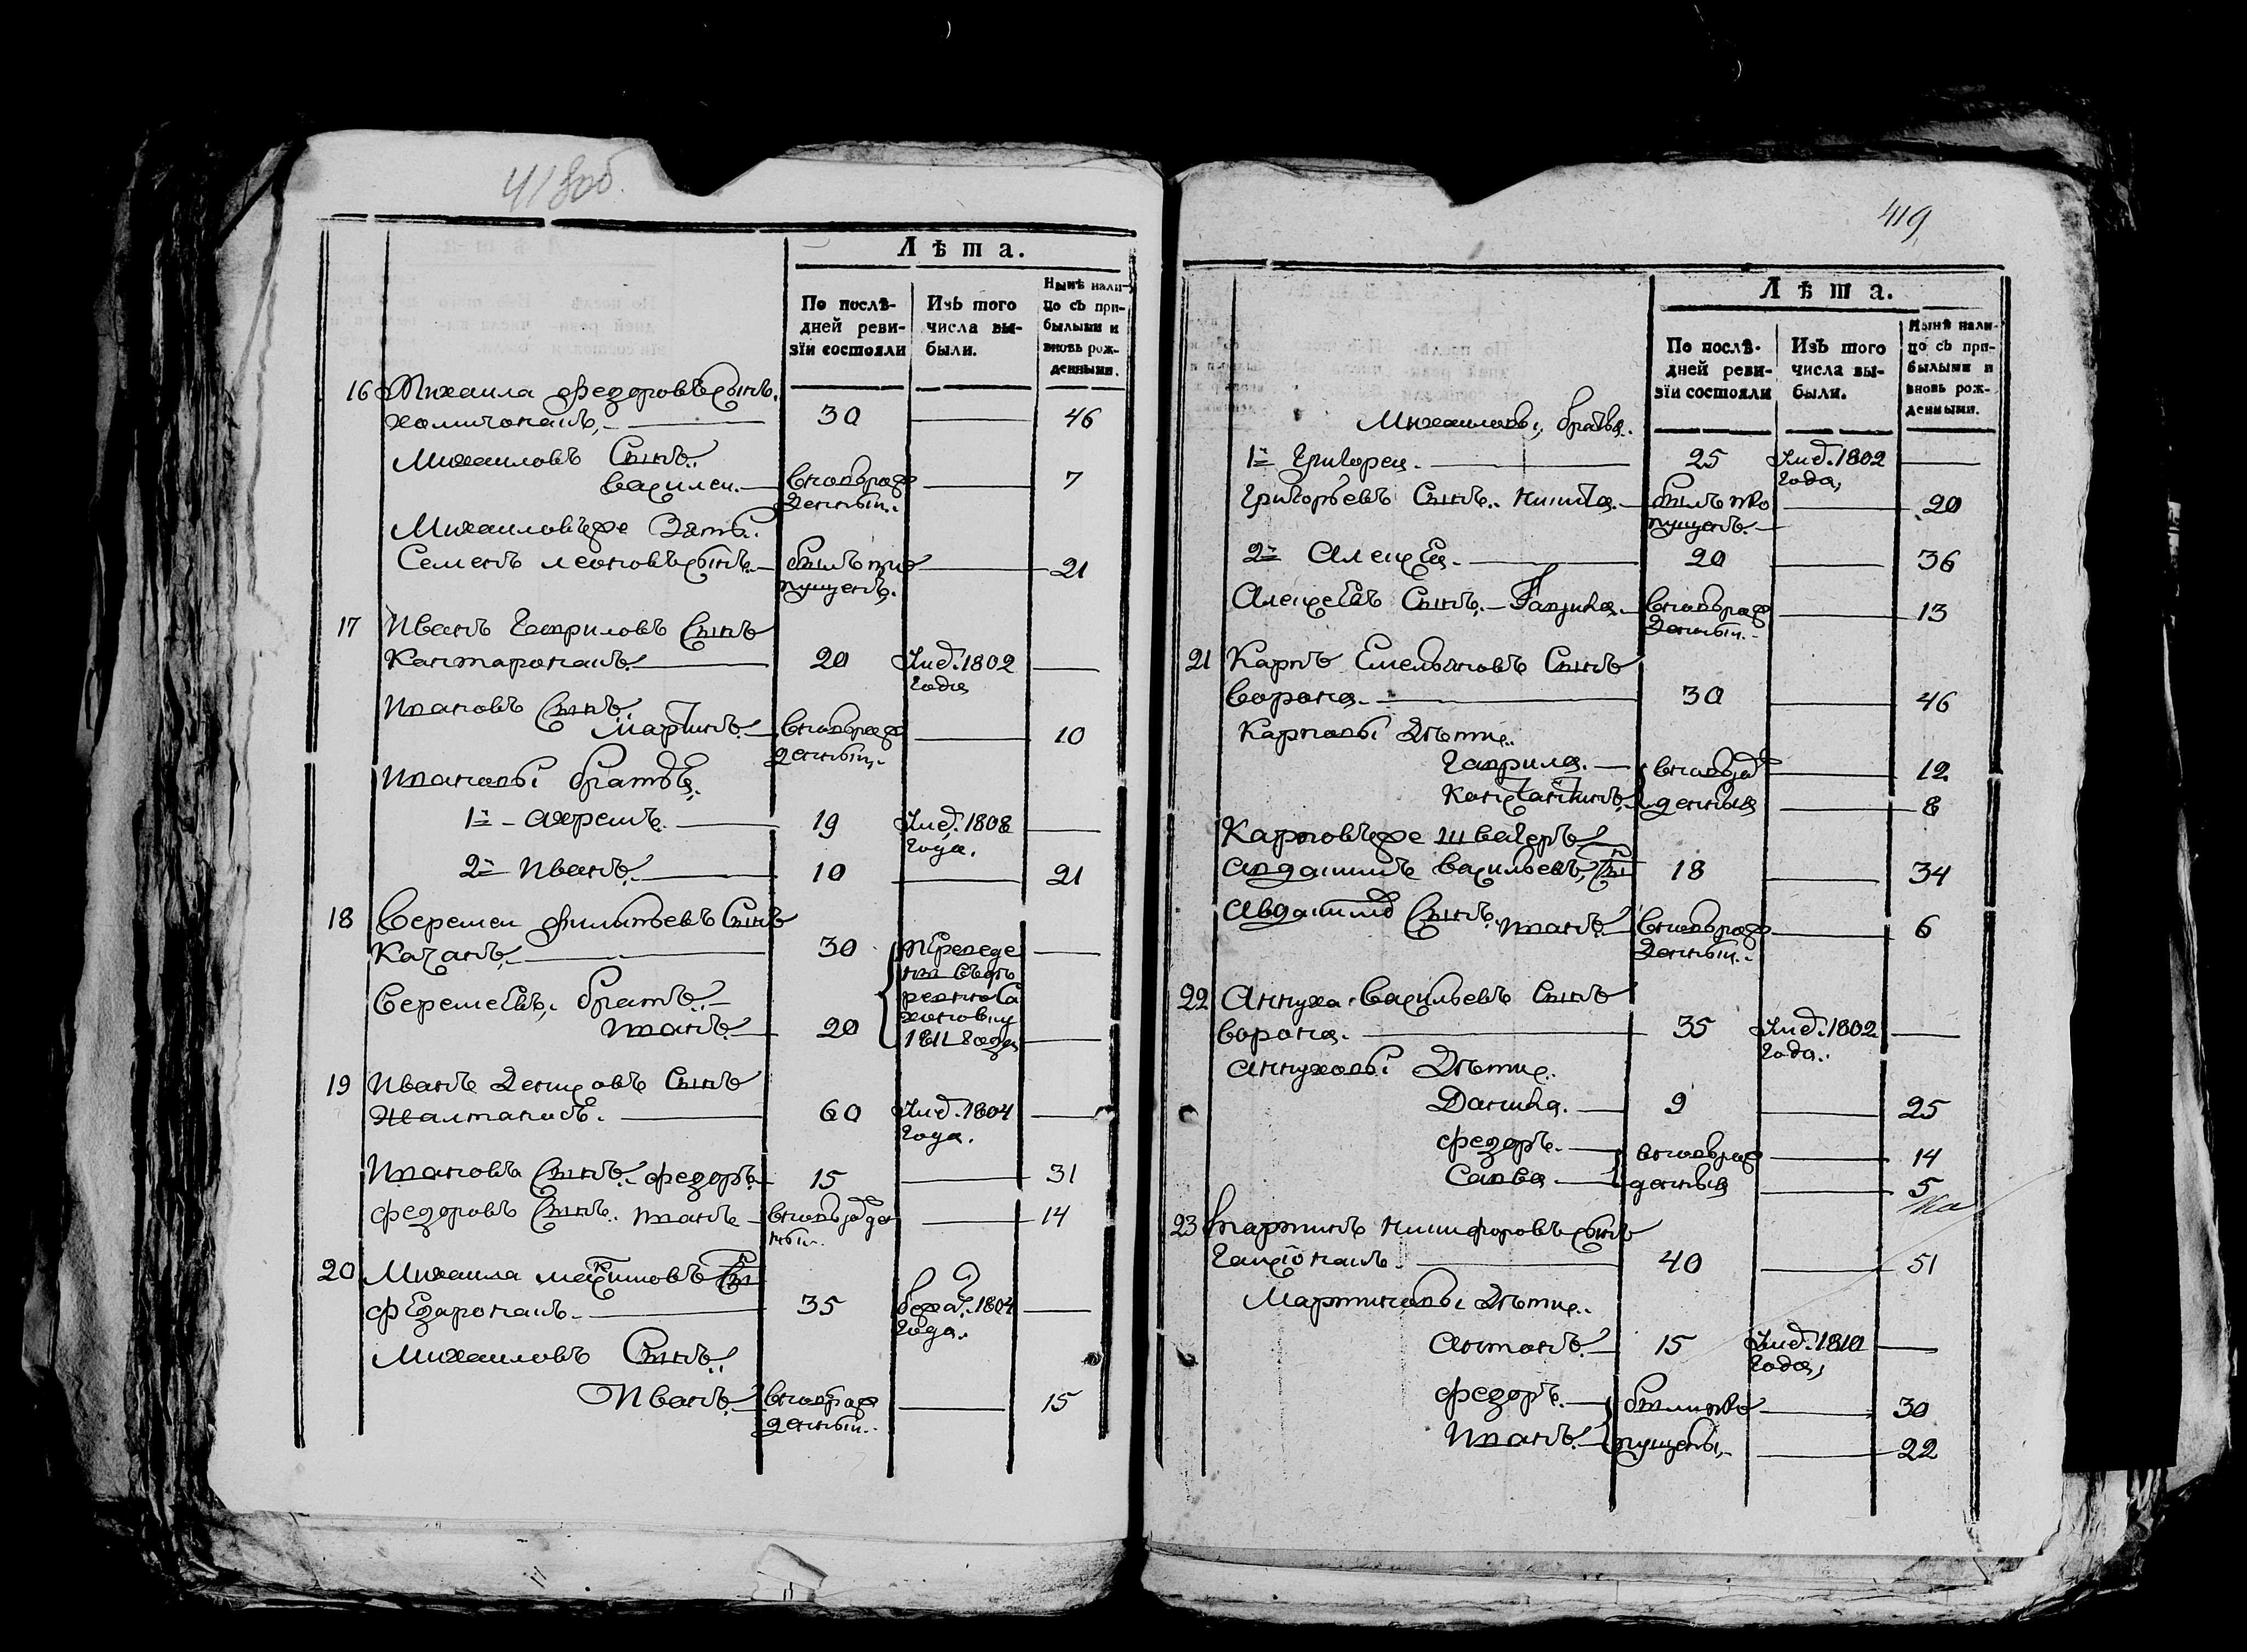 418об.
Лѣта.
По послѣ-
дней реви-
зїи состояли
Изъ того
числа вы-
были.
Нынѣ нали-
цо съ при-
былыми и
вновь рож-
денными.
16 Михаила Федоровъ сынъ
30 46
Михаиловъ Сынъ
Василеи. вновьрож 7
денныи.
Михаиловъже Зять
Семенъ леоновъ сынъ былъ про 21
пущенъ.
17 Иванъ Гавриловъ Сынъ
20 Умѣ. 1802
года
Ивановъ Сынъ
Мартинъ вновьрож 10
денныи.
Ивановы братья
1й 19 Умѣ. 1808
года.
2й Иванъ 10 21
18 Веремеи Филипьевъ Сынъ
Качанъ 30 переведе
ны въдѣ
Веремеевъ братъ
Иванъ 20
1811 года
19 Иванъ Денисовъ Сынъ
60 Умѣ. 1804
года.
Ивановъ Сынъ Федоръ 15 31
Федоровъ Сынъ Иванъ вновьрожде 14
нныи.
20 Михаила Максимовъ Сынъ
35 бежал. 1804
года.
Михаиловъ Сынъ
Иванъ вновьрож 15
денныи.
419
Лѣта.
По послѣ-
дней реви-
зїи состояли
Изъ того
числа вы-
были.
Нынѣ нали-
цо съ при-
былыми и
вновь рож-
денными.
Михаиловы братья
1й Григореи. 25 Умѣ. 1802
года,
Григорьевъ Сынъ Никита былъ про 20
пущенъ.
2й Алексеи. 20 36
Алексеевъ Сынъ Ганжа вновьрож 13
денныи.
21 Карпъ Емельяновъ Сынъ
Ворона. 30 46
Карповы Дѣти
Гаврила. вновьрож 12
Константинъ денныя 8
Карповъже швагеръ
Авдакимъ Васильевъ 18 34
Сынъ Иванъ вновьрож 6
денныи.
22 Аннуха Васильевъ Сынъ
Ворона. 35 Умѣ. 1802
года.
Аннуховы Дѣти
Данила. 9 25
Федоръ. вновьрож 14
Савва денныя 5
23 Мартинъ Никифоровъ сынъ
40 51
Мартиновы Дѣти
Антонъ 15 Умѣ. 1810
года,
Федоръ. были про 30
Иванъ пущены, 22